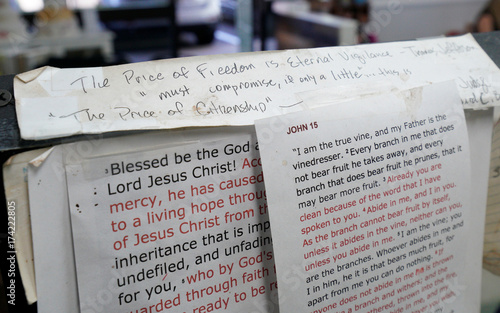 The Price of Freedom is Eternal Vigilance - Thomas Jefferson
"must compromise, if only a little"... this is
"The Price of Citizenship"
Blessed be the God a
Lord Jesus Christ! Acc
mercy, he has caused
to a living hope throug
of Jesus Christ from th
inheritance that is imp
undefiled, and unfading
for you, who by God's
guarded through faith
ready to be re
JOHN 15
"I am the true vine, and my Father is the
vinedresser. 2Every branch in me that does
not bear fruit he takes away, and every
branch that does bear fruit he prunes, that it
may bear more fruit. 3Already you are
clean because of the word that I have
spoken to you. 4Abide in me, and I in you.
As the branch cannot bear fruit by itself,
unless it abides in the vine, neither can you,
unless you abide in me. 5I am the vine; you
are the branches. Whoever abides in me and
I in him, he it is that bears much fruit, for
apart from me you can do nothing. 6If
anyone does not abide in me he is thrown
away like a branch and withers; and the
gathered, thrown into the
174222805